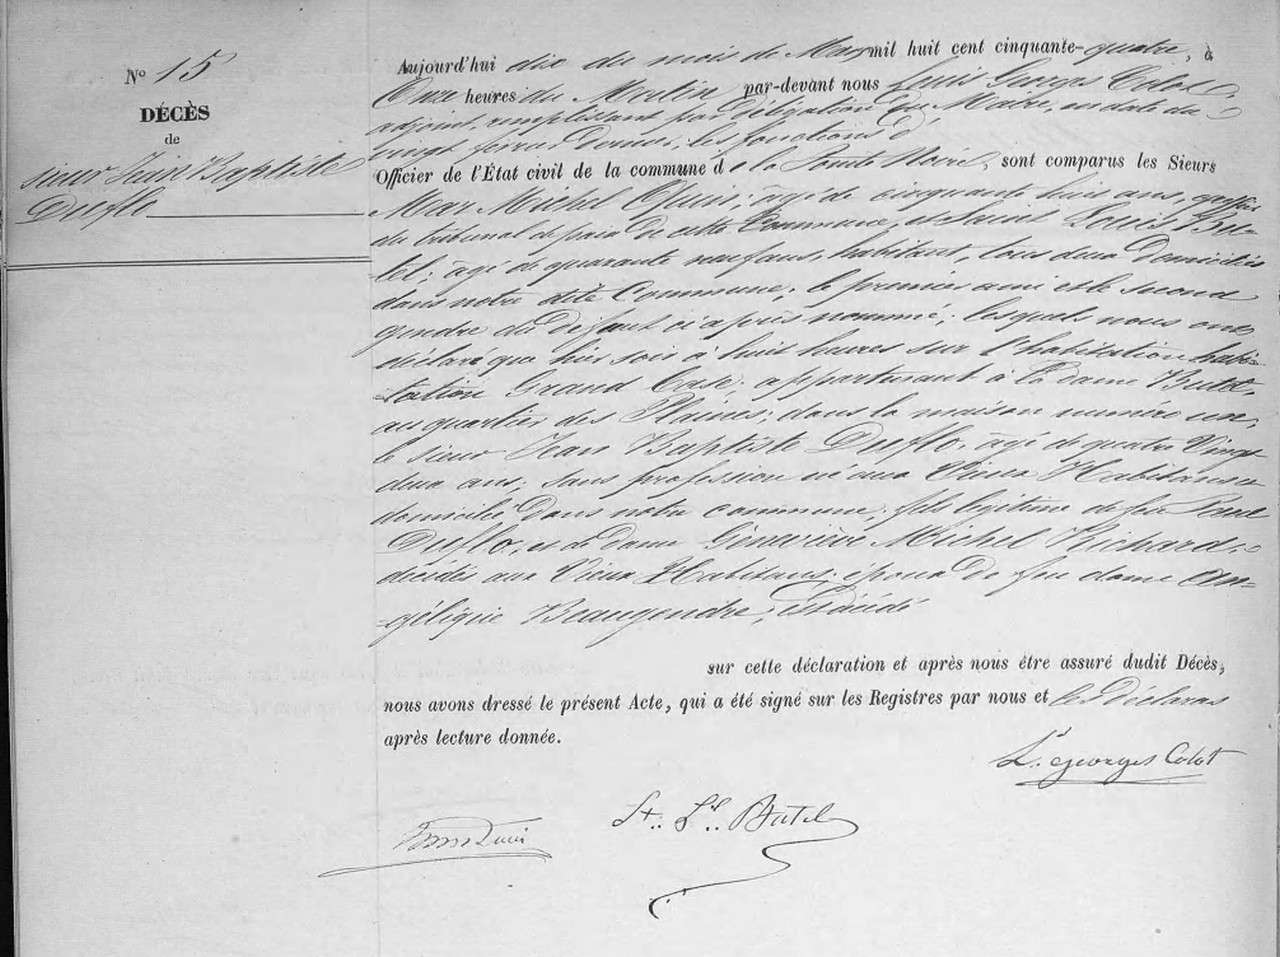 N° 15
DÉCÈS
de
sieur Jean Baptiste
Duflo
Aujourd'hui dix du mois de May mil huit cent cinquante-quatre, à
Onze heures du Matin par-devant nous Louis Georges Colot
adjoint, remplissant par délégation du Maire, en date du
vingt février dernier, les fonctions d'
Officier de l'État civil de la commune de la Pointe Noire, sont comparus les Sieurs
Mar Michel âgé de cinquante huit ans, greffier
du tribunal de paix de cette Commune et Saint Louis Bu-
tel, âgé de quarante neuf ans, habitant, tous deux domiciliés
dans notre dite Commune, le premier ami et le second
gendre du défunt ci après nommé; lesquels nous ont
déclaré que hier soir à huit heures sur l'habitation habi-
tation Grand Case, appartenant à la dame Butel,
au quartier des Plaines, dans la maison numéro un,
le sieur Jean Baptiste Duflo, âgé de quatre Vingt
deux ans, sans profession né aux Vieux Habitans
domicilié dans notre commune, fils légitime de feu
Duflo, et de dame Géneviève Michel Richard
décédés aux Vieux Habitans, époux de feu dame An-
gélique Beaugendre, est décédé
sur cette déclaration et après nous être assuré dudit Décès,
nous avons dressé le présent Acte, qui a été signé sur les Registres par nous et les déclarans
après lecture donnée.
Ls. Georges Colot
St. Ls. Butel